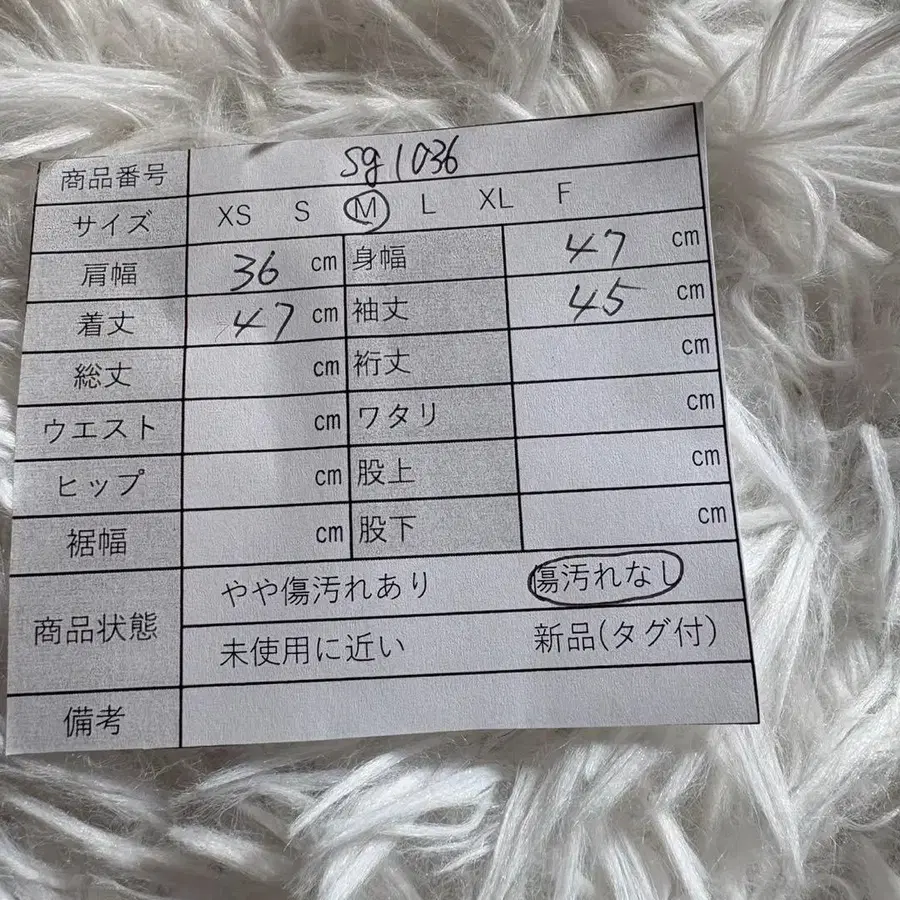 商品番号 sg1036
サイズ XS S M L XL F
肩幅 36 cm 身幅 47 cm
着丈 47 cm 袖丈 45 cm
総丈 cm 裄丈 cm
ウエスト cm ワタリ cm
ヒップ cm 股上 cm
裾幅 cm 股下 cm
商品状態 やや傷汚れあり 傷汚れなし
未使用に近い 新品(タグ付)
備考